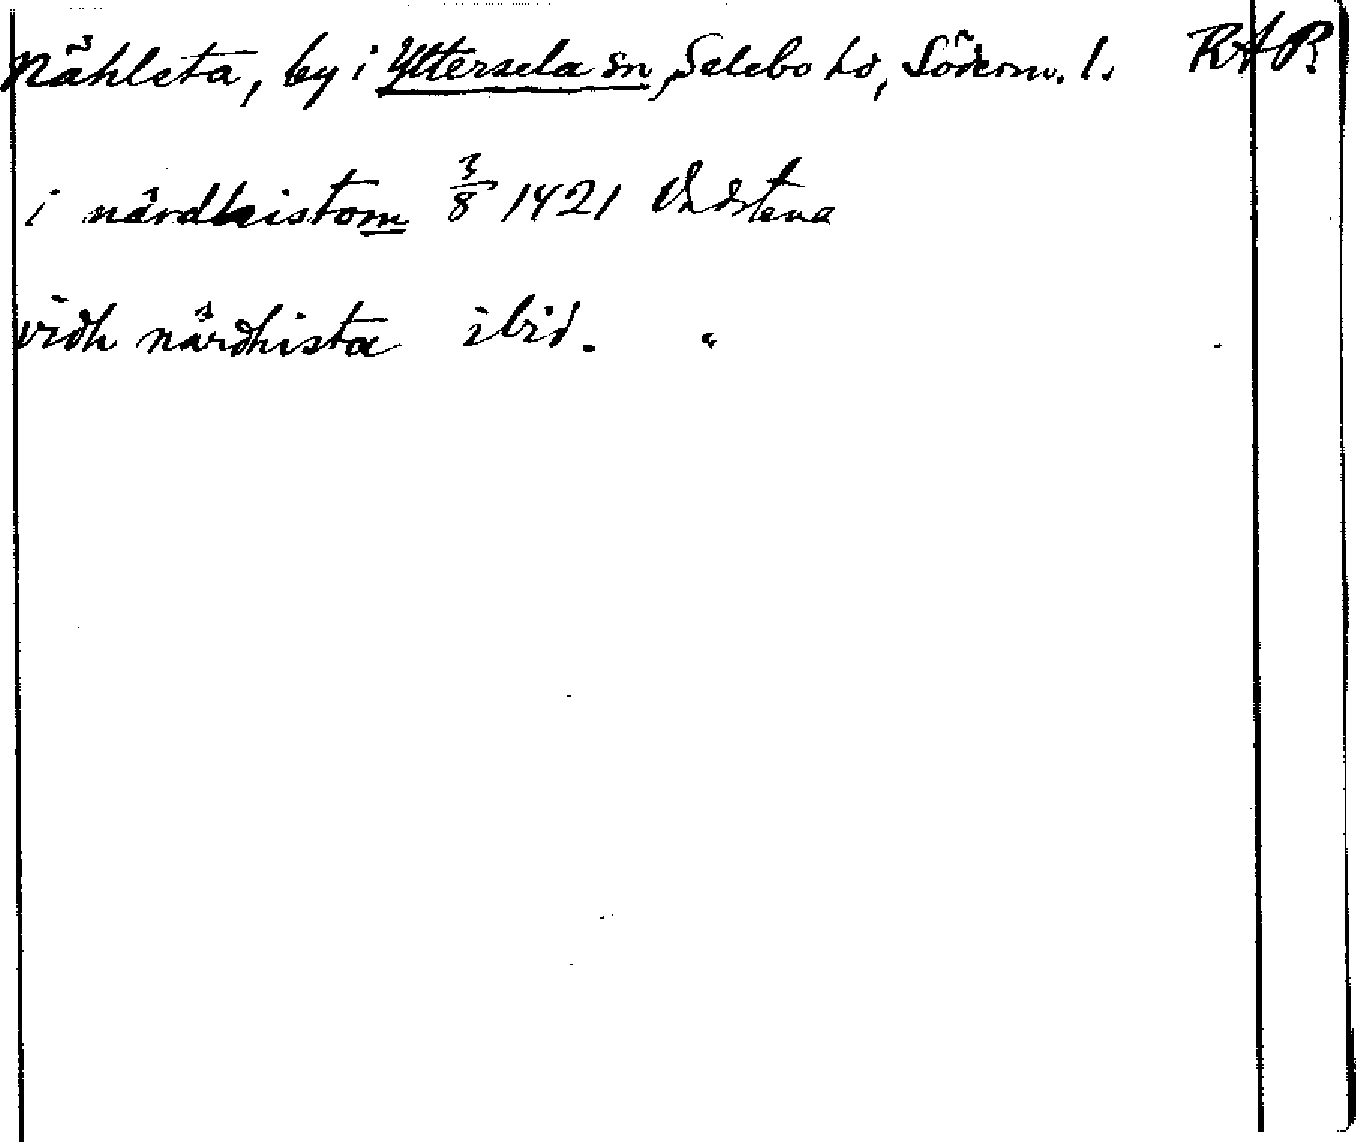 Nähleta, by i Yttersela sn, Selebo hd, Söderm. l. RAP.
i närdhistom 3/8 1421 Vadstena
vidh nårdhista ibid. "